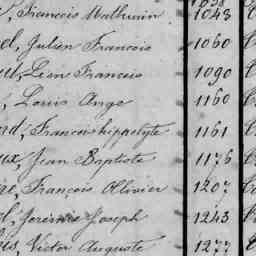 1038
François Mathurin 1043
el, Julien François 1060
Léon François 1090
Louis Ange 1160
nd, François hippolyte 1161
ux, Jean Baptiste 1176
François Ollivier 1207
Jérémie Joseph 1243
Victor Auguste 1277